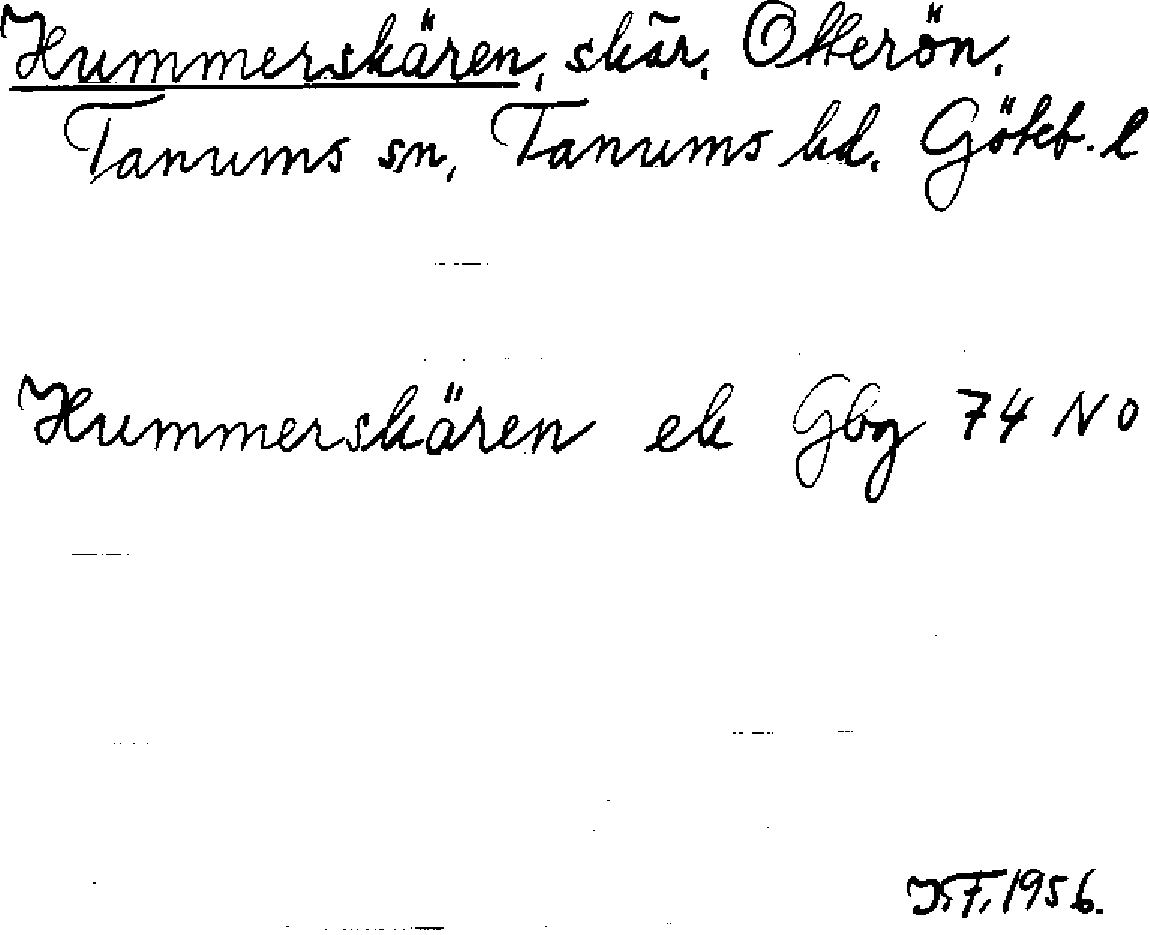 Hummerskären, skär. Otterön.
Tanums sn, Tanums hd. Göteb. l
Hummerskären ek Gbg 74 NO
1956.